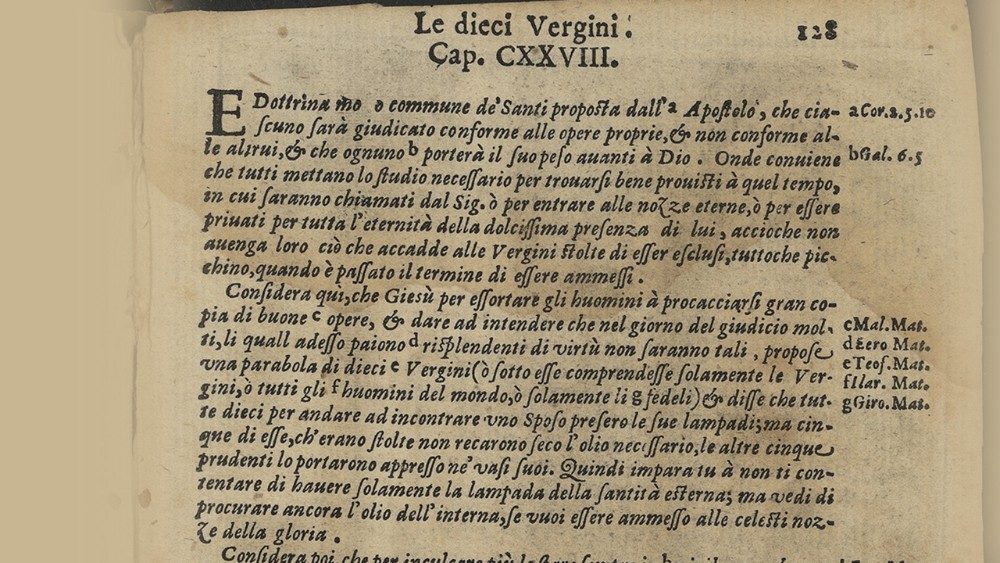 Le dieci Vergini. 128
Cap. CXXVIII.
E Dottrina mo o commune de' Santi proposta dall' a Apostolo, che cia- a Cor. 2. 5. 10
scuno sarà giudicato conforme alle opere proprie, & non conforme al-
le altrui, & che ognuno b porterà il suo peso auanti à Dio. Onde conuiene b Gal. 6. 5
che tutti mettano lo studio necessario per trouarsi bene prouisti à quel tempo,
in cui saranno chiamati dal Sig. ò per entrare alle nozze eterne, ò per essere
priuati per tutta l'eternità della dolcissima presenza di lui, accioche non
auenga loro ciò che accadde alle Vergini stolte di esser esclusi, tuttoche pic-
chino, quando è passato il termine di essere ammessi.
Considera qui, che Giesù per essortare gli huomini à procacciarsi gran co-
pia di buone c opere, & dare ad intendere che nel giorno del giudicio mol- c Mal. Mat.
ti, li quall adesso paiono d risplendenti di virtù non saranno tali, propose d Zero Mat.
vna parabola di dieci e Vergini (ò sotto esse comprendesse solamente le Ver- e Teof. Mat.
gini, ò tutti gli f huomini del mondo, ò solamente li g fedeli) & disse che tut- f Ilar. Mat.
te dieci per andare ad incontrare vno Sposo presero le sue lampadi; ma cin- g Giro. Mat.
que di esse, ch'erano stolte non recarono seco l'olio necessario, le altre cinque
prudenti lo portarono appresso ne' vasi suoi. Quindi impara tu à non ti con-
tentare di hauere solamente la lampada della santità esterna; ma vedi di
procurare ancora l'olio dell'interna, se vuoi essere ammesso alle celesti noz-
ze della gloria.
Considera poi, che per inculcare più